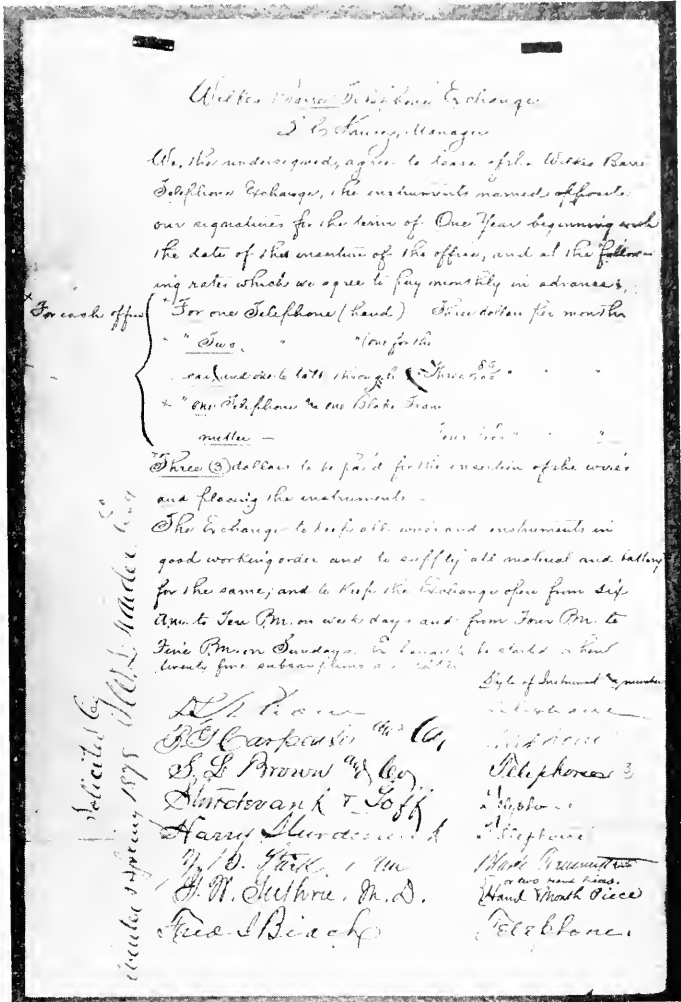 Wilkes Barre Telephone Exchange
Manager
We, the undersigned, agree to lease of the Wilkes Barre
Telephone Exchange, the instruments named opposite
our signatures for the term of One Year beginning with
the date of the insertion of the offices, and at the follow-
ing rates which we agree to pay monthly in advance:
For each office
"For one Telephone (hand) Three dollars per month
" " Two " " (one for the
ear and one to talk through) Three "
" one Telephone one Blake Trans
mitter —
Three (3) dollars to be paid for the insertion of the wires
and placing the instruments —
The Exchange to keep all wires and instruments in
good working order and to supply all material and battery
for the same, and to keep the Exchange open from six
Am. to Ten Pm. on week days and from Four Pm. to
Five Pm. on Sundays. to be started when
twenty five subscriptions are
Style of Instrument & number
B G Carpenter and Co,
S. L. Brown and Co Telephones 3
Sturdevant & Goff Telephone
Harry Telephone
Park Blake Transmitter
or two hand
G. W. Guthrie. M.D. Hand & Mouth Piece
Fred Telephone
Solicited by
spring 1878